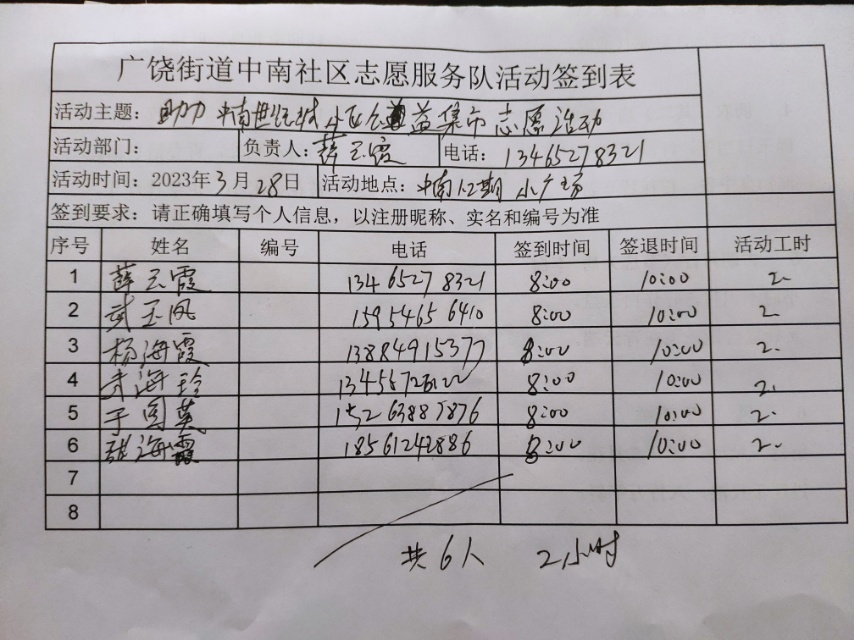 广饶街道中南社区志愿服务队活动签到表
活动主题：助力中南世纪城小区公益集市志愿活动
活动部门： 负责人：薛云霞 电话：13465278321
活动时间：2023年3月28日 活动地点：中南12期小广场
签到要求：请正确填写个人信息，以注册昵称、实名和编号为准
序号 姓名 编号 电话 签到时间 签退时间 活动工时
1 薛云霞 13465278321 8:00 10:00 2.
2 武玉凤 15954656410 8:00 10:00 2.
3 杨海霞 13884915377 8:00 10:00 2.
4 海玲 8:00 10:00 2.
5 于国英 15263887876 8:00 10:00 2.
6 海霞 18561242886 8:00 10:00 2.
7
8
共6人 2小时